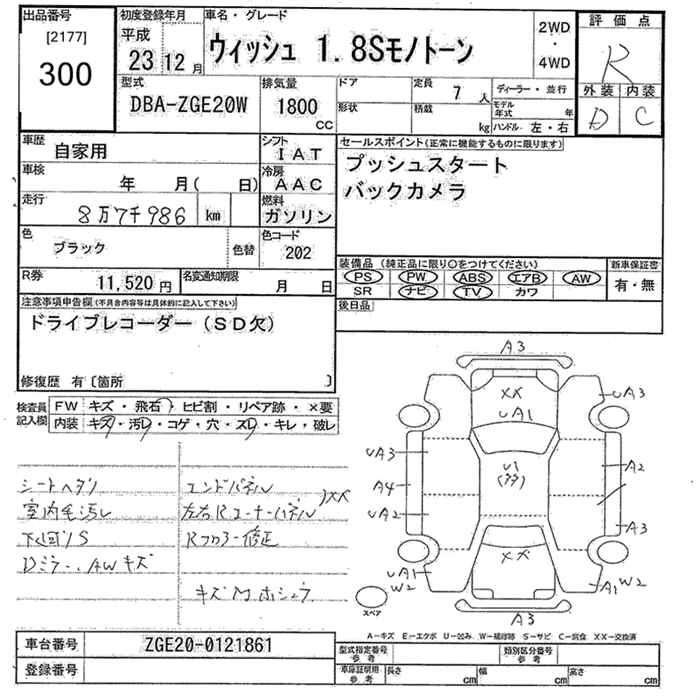 出品番号
[2177]
300
初度登録年月
平成
23 12 月
車名・グレード
ウィッシュ 1.8Sモノトーン
2WD
・
4WD
評価点
R
外装 内装
D C
型式
DBA-ZGE20W
排気量
1800
cc
ドア
形状
定員
7 人
積載
kg
ディーラー・並行
モデル年式 年
ハンドル 左・右
車歴
自家用
シフト
IAT
車検
年 月( 日)
冷房
AAC
走行
8万7千986 km
燃料
ガソリン
色
ブラック
色替
色コード
202
R券
11,520 円
名変通知期限
月 日
セールスポイント(正常に機能するものに限ります)
プッシュスタート
バックカメラ
装備品(純正品に限り○をつけてください)
PS PW ABS エアB AW
SR ナビ TV カワ
新車保証書
有・無
後日品
注意事項申告欄(不具合内容等は具体的に記入して下さい)
ドライブレコーダー(SD欠)
修復歴 有〔箇所 〕
検査員記入欄
FW キズ・飛石・ヒビ割・リペア跡・×要
内装 キズ・汚レ・コゲ・穴・スレ・キレ・破レ
シートヘタリ
室内毛汚レ
下回りS
Dミラー、AWキズ
エンドパネル
左右Rコーナーパネル
)XX
Rフロアー修正
A3
XX
UA1
UA3
UA3
A4
UA2
U1
A2
A3
XX
UA1
W2
A1
W2
A3
スペア
A―キズ E―エクボ U―凹み W―補修跡 S―サビ C―腐食 XX―交換済
車台番号
ZGE20-0121861
登録番号
型式指定番号
参考
類別区分番号
参考
車庫証明用
参考
長さ cm
幅 cm
高さ cm